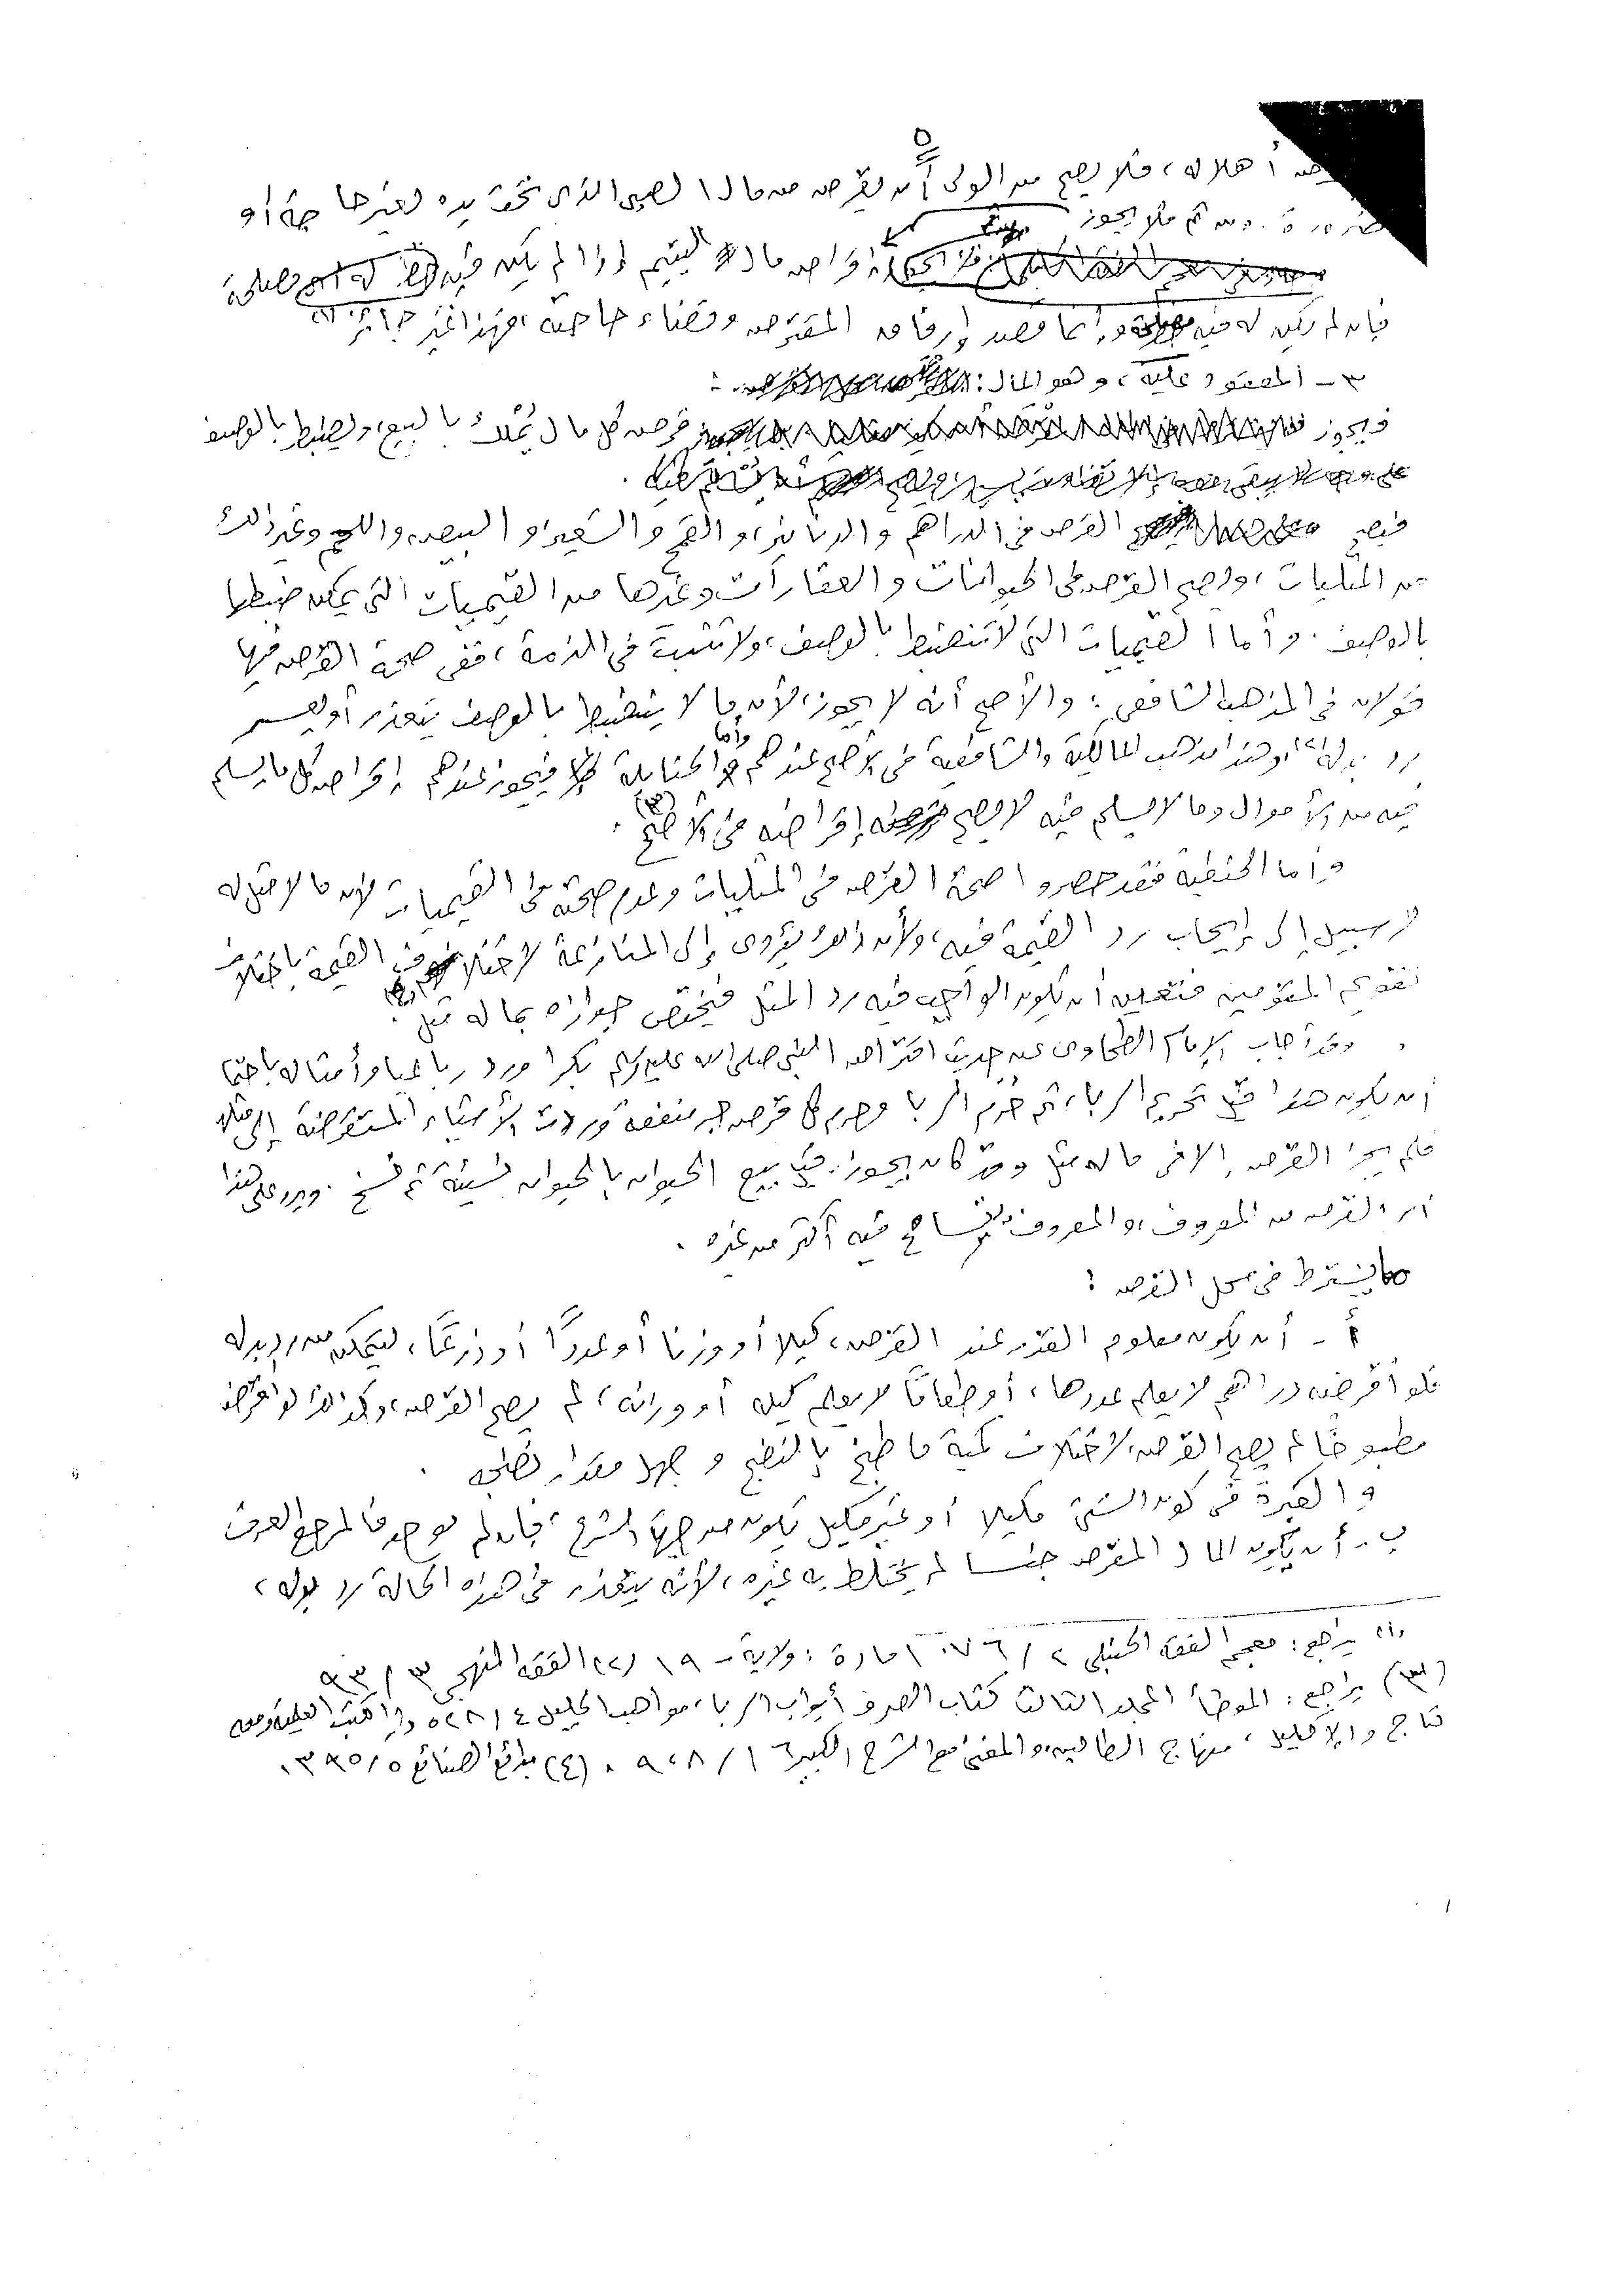 ٥
أهلا له، فلا يصح من الولى أن يقرض من مال الصبى الذى تحت يده لغير حاجة أو
ضرورة. ومن ثم فلا يجوز
إقراض مال اليتيم إذا لم يكن فيه مصلحة
فإن لم يكن له فيه مصلحة وإنما قصد إرفاق المقترض وقضاء حاجته، فهذا غير جائز (١)
٣ - المعقود عليه، وهو المال:
فيجوز قرض كل مال يُملك بالبيع، ويضبط بالوصف
فيصح القرض فى الدراهم والدنانير، والقمح والشعير، والبيض، واللحم وغير ذلك
من المثليات، ويصح القرض فى الحيوانات والعقارات وغيرها من القيميات التى يمكن ضبطها
بالوصف. وأما القيميات التى لا تنضبط بالوصف، ولا تثبت فى الذمة، ففى صحة القرض فيها
قولان فى المذهب الشافعى: والأصح أنه لا يجوز، لأن ما لا ينضبط بالوصف يتعذر أو يعسر
رد بدله (٢)، وهذا مذهب المالكية والشافعية فى الأصح عندهم وأما الحنابلة فيجوز عندهم إقراض كل ما يسلم
فيه من الأموال وما لا يسلم فيه لا يصح إقراضه فى الأصح (٣).
وأما الحنفية فقد حصروا صحة القرض فى المثليات وعدم صحته فى القيميات لأن ما لا مثل له
لا سبيل إلى إيجاب رد القيمة فيه، ولأن ذلك يؤدى إلى المنازعة لاختلاف القيمة باختلاف
تقويم المقومين فتعين أن يكون الواجب فيه رد المثل فيختص جوازه بما له مثل (٤).
وقد أجاب الإمام الطحاوى عن حديث اقتراض النبى صلى الله عليه وسلم بكرا ورد رباعيا وأمثاله باحتمال
أن يكون هذا قبل تحريم الربا، ثم حُرم الربا وحرم كل قرض جر منفعة وردت الأشياء المستقرضة إلى مثلها
فلم يجز القرض إلا فى ما له مثل وقد كان يجوز قبل بيع الحيوان بالحيوان نسيئة ثم نسخ. ويرد على هذا
أن القرض من المعروف، والمعروف يتسامح فيه أكثر من غيره.
ما يشترط فى محل القرض:
أ - أن يكون معلوم القدر عند القرض، كيلا أو وزنا أو عددًا أو ذرعًا، ليتمكن من رد بدله
فلو أقرضه دراهم لا يعلم عددها، أو طعامًا لا يعلم كيله أو وزنه، لم يصح القرض، وكذلك لو أقرضه
مطبوخًا لم يصح القرض، لاختلاف كمية ما طبخ بالنضج وجهل مقدار نضجه.
والعبرة فى كون الشىء مكيلا أو غير مكيل يكون من جهة الشرع، فإن لم يوجد فالمرجع العرف
ب - أن يكون المال المقرض جنسا لم يختلط به غيره، لأنه يتعذر فى هذه الحالة رد بدله،
(١) يراجع: معجم الفقه الحنبلى ٢ / ١٠٧٦ مادة: ولاية - ١٩ (٢) الفقه المنهجى ٣ / ٩٣
(٣) يراجع: الموطأ المجلد الثالث كتاب الصرف أبواب الربا، مواهب الجليل ٤ / ٥٢٨ دار الكتب العلمية ومعه
تاج والإكليل، منهاج الطالبين، والمغنى مع الشرح الكبير ٦ / ٩٢٨. (٤) بدائع الصنائع ٥ / ٣٩٥.